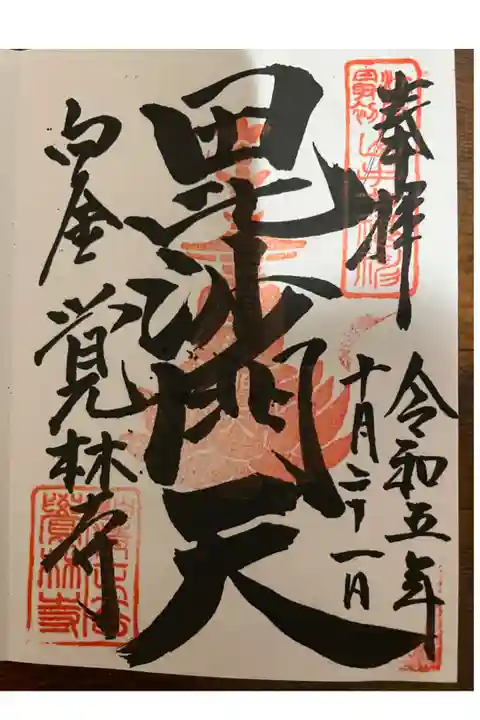 奉拝
令和五年
十月二十一日
毘沙門天
白金 覚林寺
覺林寺